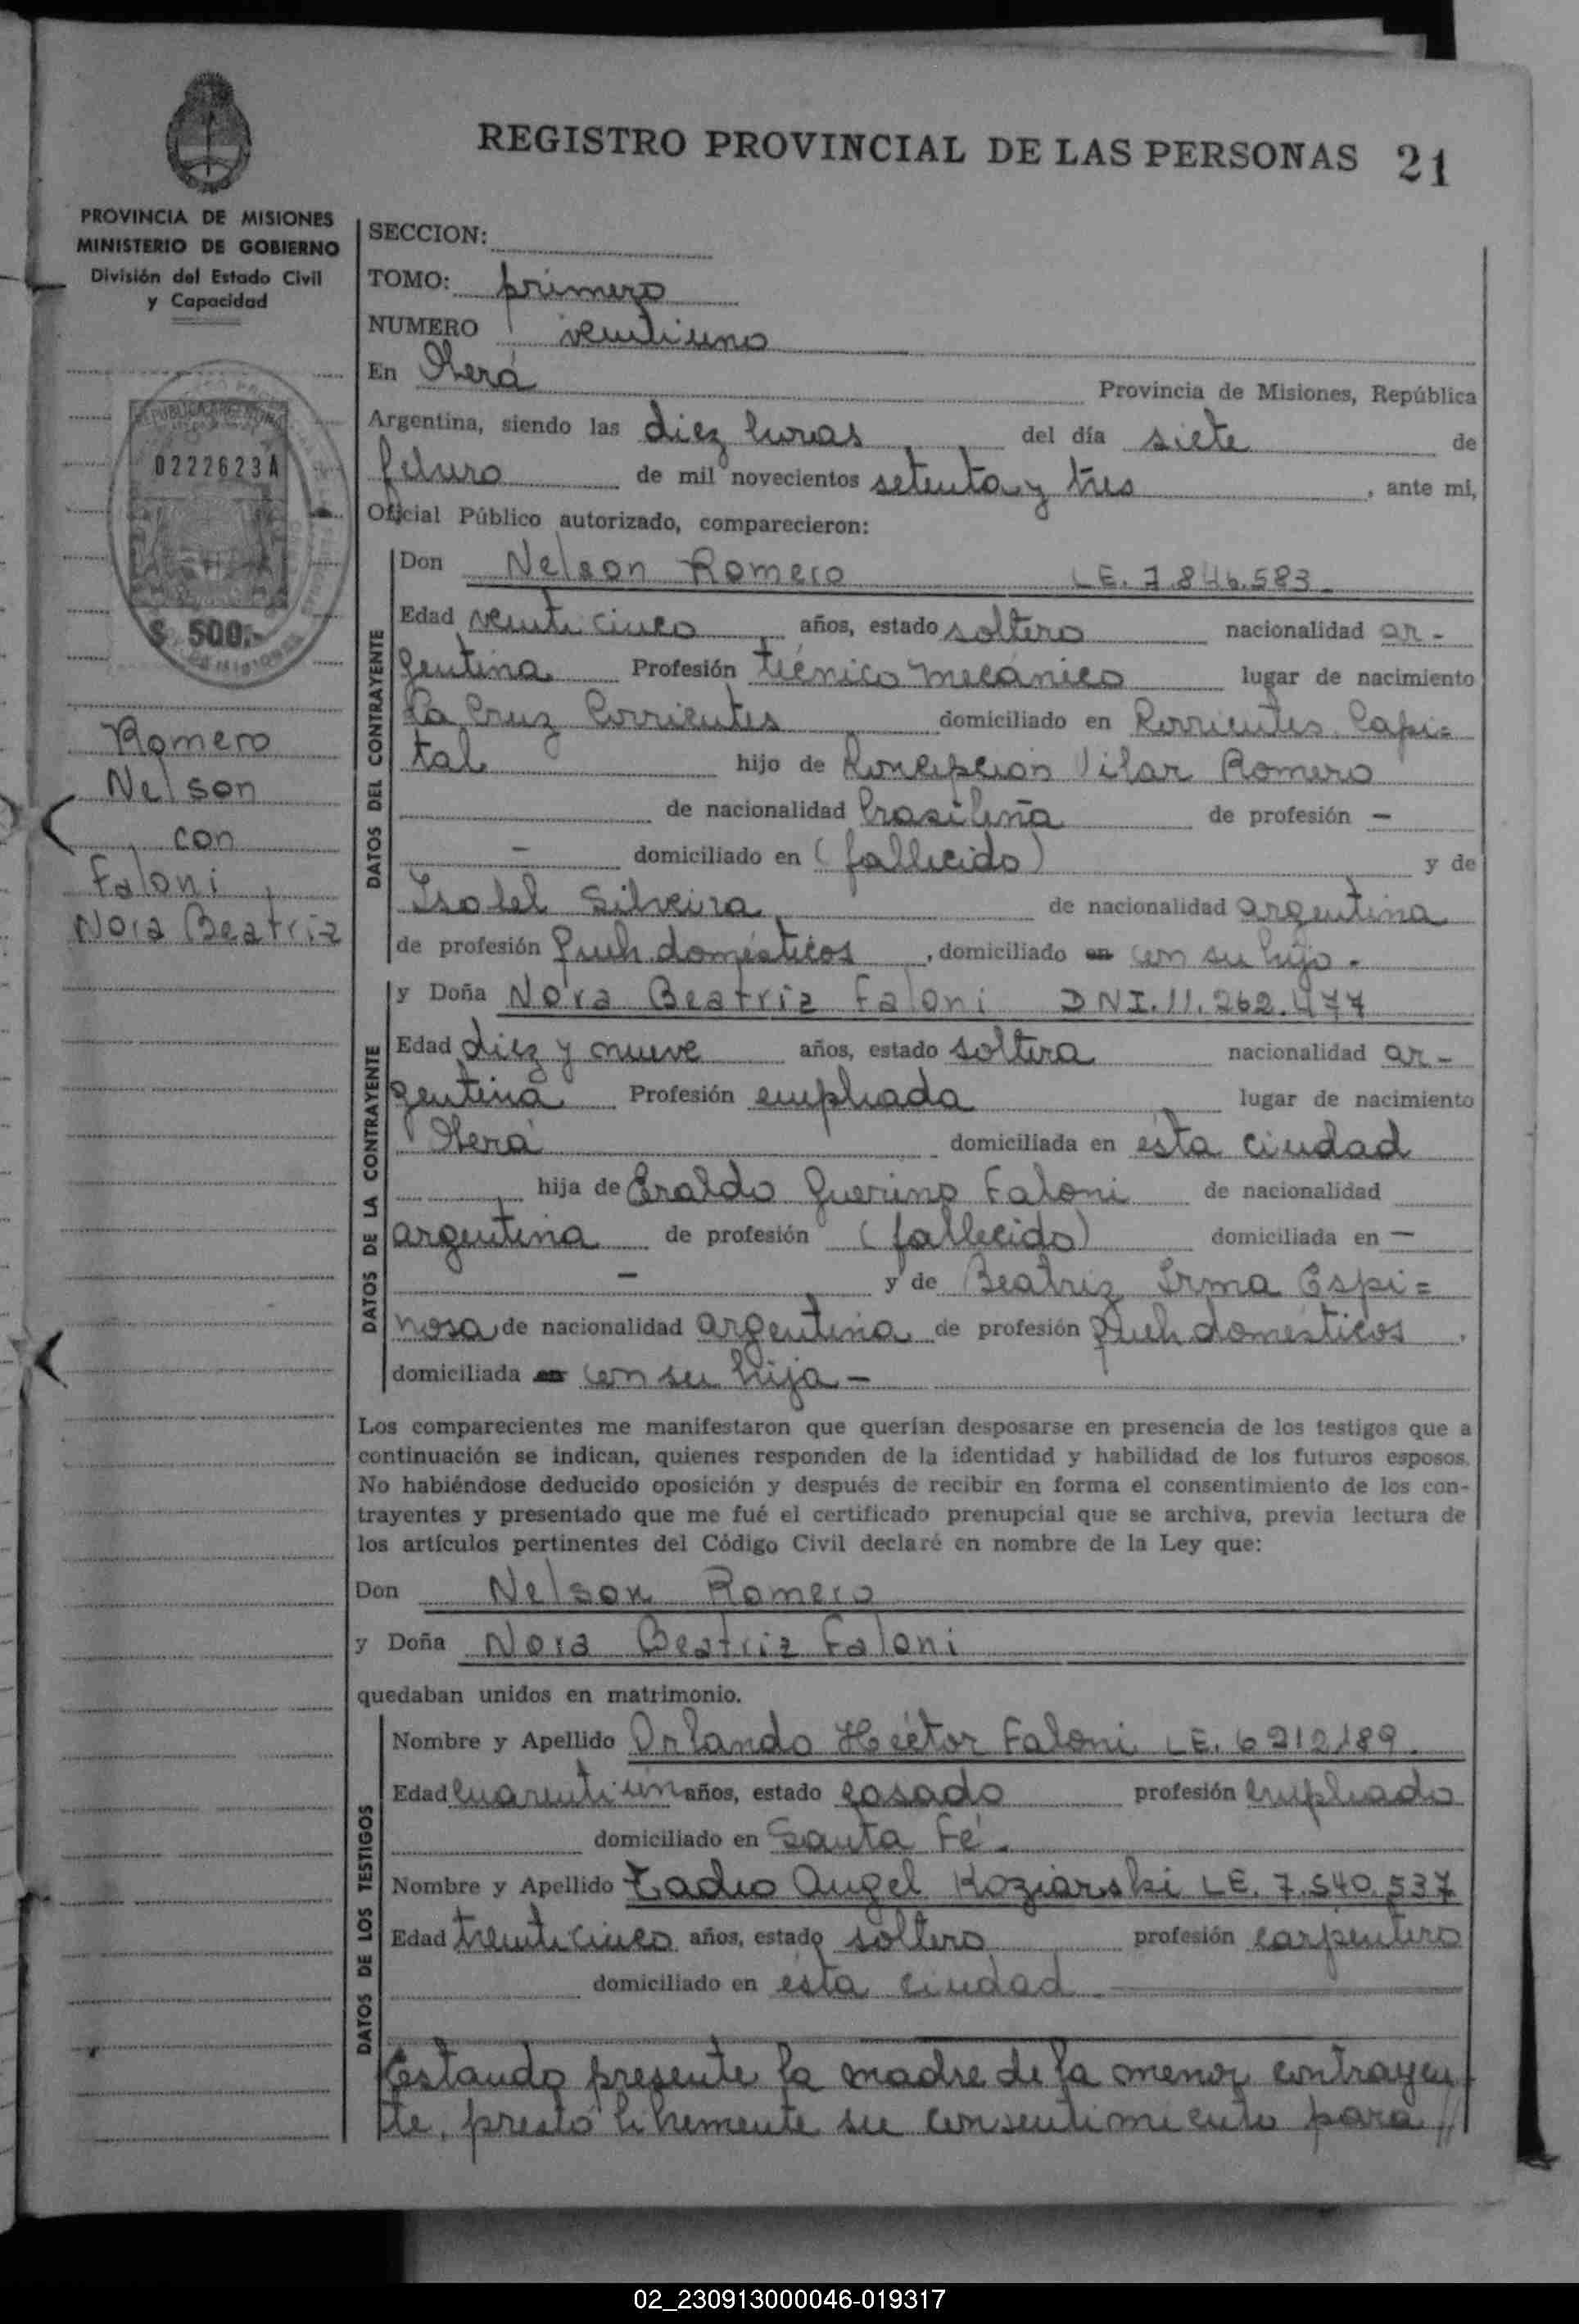 REGISTRO PROVINCIAL DE LAS PERSONAS 21
PROVINCIA DE MISIONES
MINISTERIO DE GOBIERNO
División del Estado Civil
y Capacidad
REPUBLICA ARGENTINA
0222623A
$ 500.-
Romero
Nelson
con
Faloni
Nora Beatriz
SECCION:
TOMO: primero
NUMERO veintiuno
En Oberá Provincia de Misiones, República
Argentina, siendo las diez horas del día siete de
febrero de mil novecientos setenta y tres, ante mi,
Oficial Público autorizado, comparecieron:
DATOS DEL CONTRAYENTE
Don Nelson Romero LE. 7.846.583
Edad veinticinco años, estado soltero nacionalidad ar-
gentina Profesión técnico mecánico lugar de nacimiento
La Cruz Corrientes domiciliado en Corrientes Capi=
tal hijo de Concepción Vilar Romero
de nacionalidad brasileña de profesión -
- domiciliado en (fallecido) y de
Isabel Silveira de nacionalidad argentina
de profesión domésticos, domiciliado en con su hijo -
DATOS DE LA CONTRAYENTE
y Doña Nora Beatriz Faloni DNI. 11.262.477
Edad diez y nueve años, estado soltera nacionalidad ar-
gentina Profesión empleada lugar de nacimiento
Oberá domiciliada en ésta ciudad
hija de Eraldo Guerino Faloni de nacionalidad
argentina de profesión (fallecido) domiciliada en -
- y de Beatriz Irma Espi=
nosa de nacionalidad argentina de profesión domésticos,
domiciliada en con su hija -
Los comparecientes me manifestaron que querían desposarse en presencia de los testigos que a
continuación se indican, quienes responden de la identidad y habilidad de los futuros esposos.
No habiéndose deducido oposición y después de recibir en forma el consentimiento de los con-
trayentes y presentado que me fué el certificado prenupcial que se archiva, previa lectura de
los artículos pertinentes del Código Civil declaré en nombre de la Ley que:
Don Nelson Romero
y Doña Nora Beatriz Faloni
quedaban unidos en matrimonio.
DATOS DE LOS TESTIGOS
Nombre y Apellido Orlando Héctor Faloni LE. 6212189.
Edad cuarentiún años, estado casado profesión empleado
domiciliado en Santa Fé.
Nombre y Apellido Tadeo Angel Koziarski LE. 7.540.537
Edad treinticinco años, estado soltero profesión carpintero
domiciliado en ésta ciudad
Estando presente la madre de la menor contrayen
te, prestó libremente su consentimiento para //
02_230913000046-019317